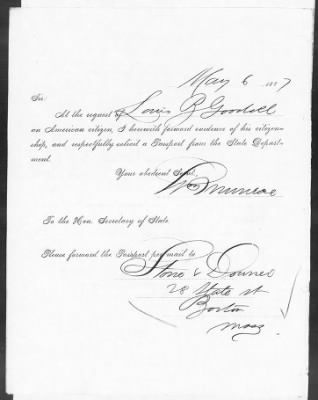 May 6 1887
Sir:
At the request of Louis B Goodall
an American citizen, I herewith forward evidence of his citizen-
ship, and respectfully solicit a Passport from the State Depart-
ment.
Your obedient Serv't,
Munroe
To the Hon. Secretary of State.
Please forward the Passport per mail to
Stone & Downer
28 State st
Boston
Mass